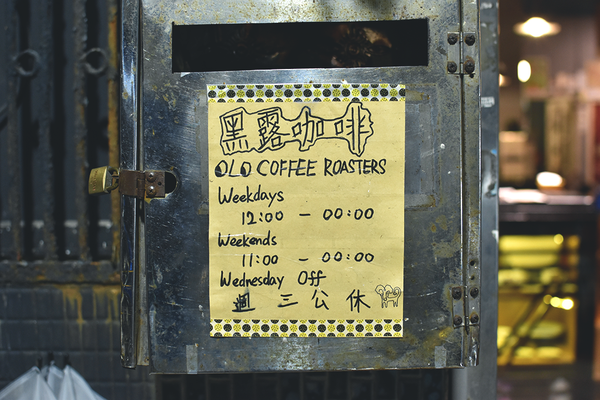 黑露咖啡
OLO COFFEE ROASTERS
Weekdays
12:00 - 00:00
Weekends
11:00 - 00:00
Wednesday Off
週三公休